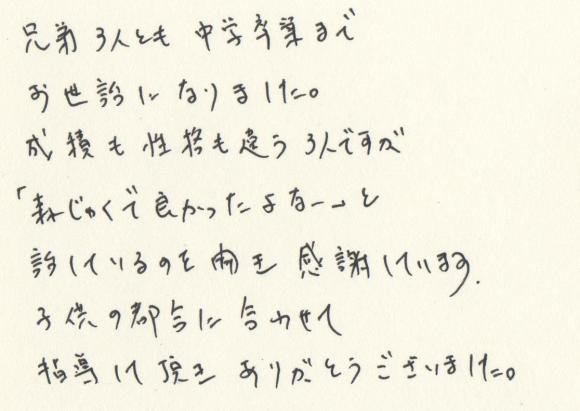 兄弟3人とも 中学卒業まで
お世話になりました。
成績も性格も違う3人ですが
「森じゅくで良かったよなー」と
話しているのを聞き 感謝しています.
子供の都合に合わせて
指導して頂き ありがとうございました。